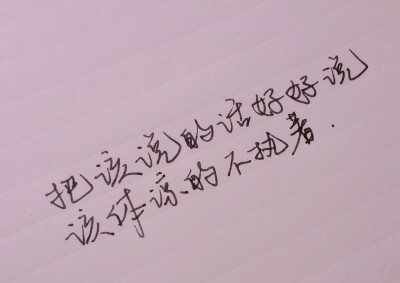 把该说的话好好说
该体谅的不执着.